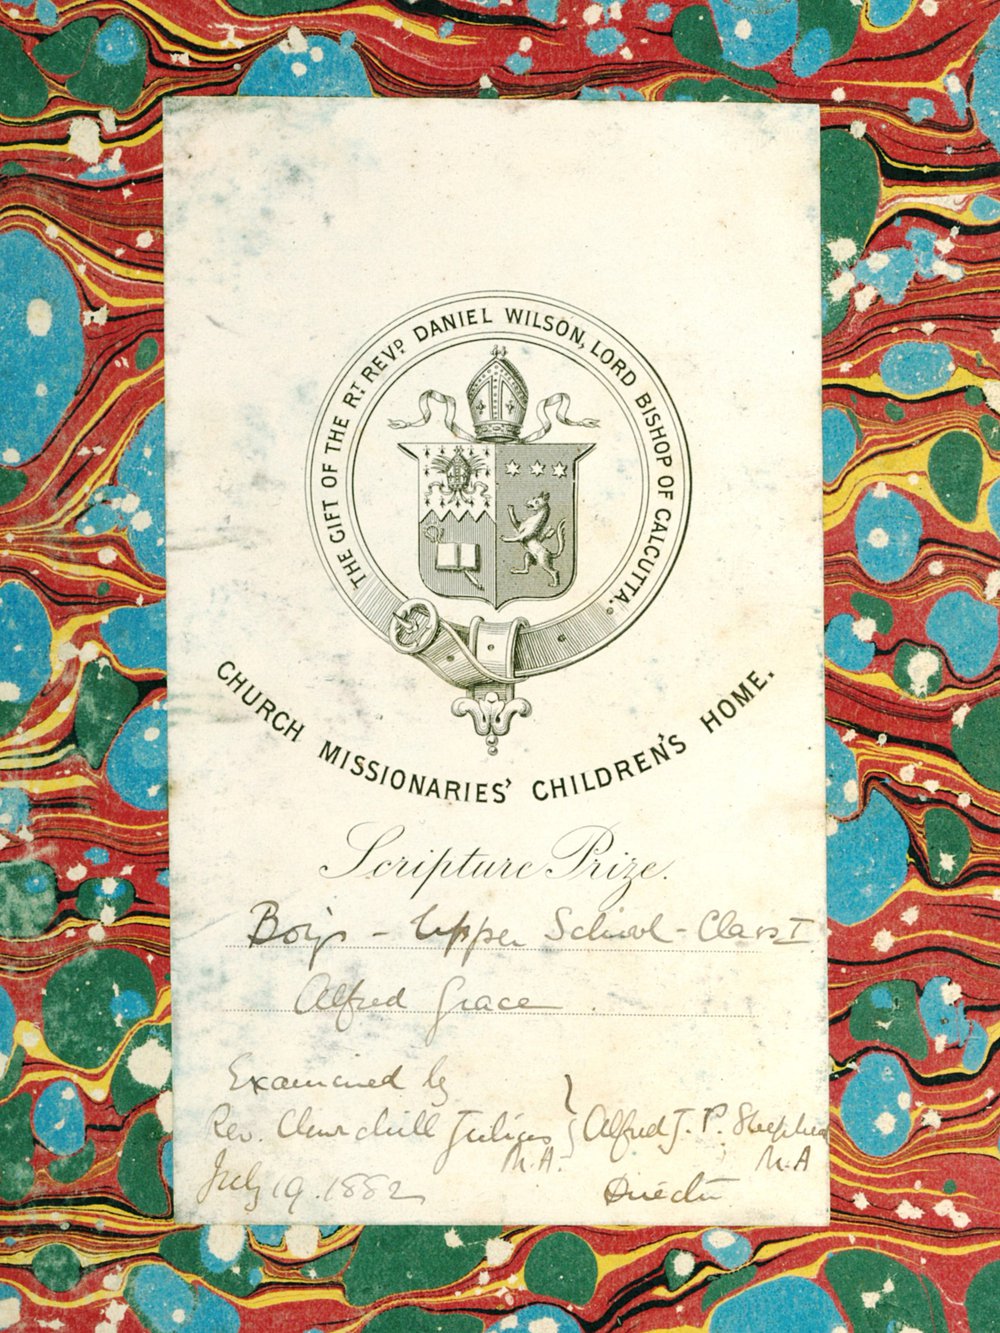 THE GIFT OF THE RT. REVD. DANIEL WILSON, LORD BISHOP OF CALCUTTA.
CHURCH MISSIONARIES' CHILDREN'S HOME.
Scripture Prize.
Boys - Upper School - Class I
Alfred Grace
Examined by
Rev. Churchill Julius M.A. } Alfred J. P. Shepherd M.A
July 19. 1882 Director